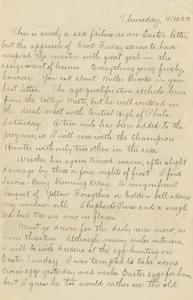 Thursday, 4/30 P.M.
This is surely a sad failure as an Easter letter,
but the approach of Good Friday seems to have
inspired the master with great zeal in the
assignment of lessons. Everything going finely,
however. You ask about Miller Brooks in your
last letter. The age qualification exclude him
from the College Meets, but he will contend in
the dual meet with Central High of Phila.
Saturday. A two mile has been added to the
program, so I will race with the champion
Hunter with only two others in the race.
Weather has again turned warm, after slight
damage by three or four nights of frost. I find
during homing today. A magnificent
of Yellow Forsythia or Golden bell adorns
my window sill. Shepherds Purse and a single
red-bud tree are now in flower.
Must go down for the daily run now, as
rain threatens. Although many miles intervene,
I will be with Frederic at the egg-hunting on
Easter Sunday. I was tempted to take some
Crow's eggs yesterday and make Easter eggs for him,
but I guess he too would rather see the old